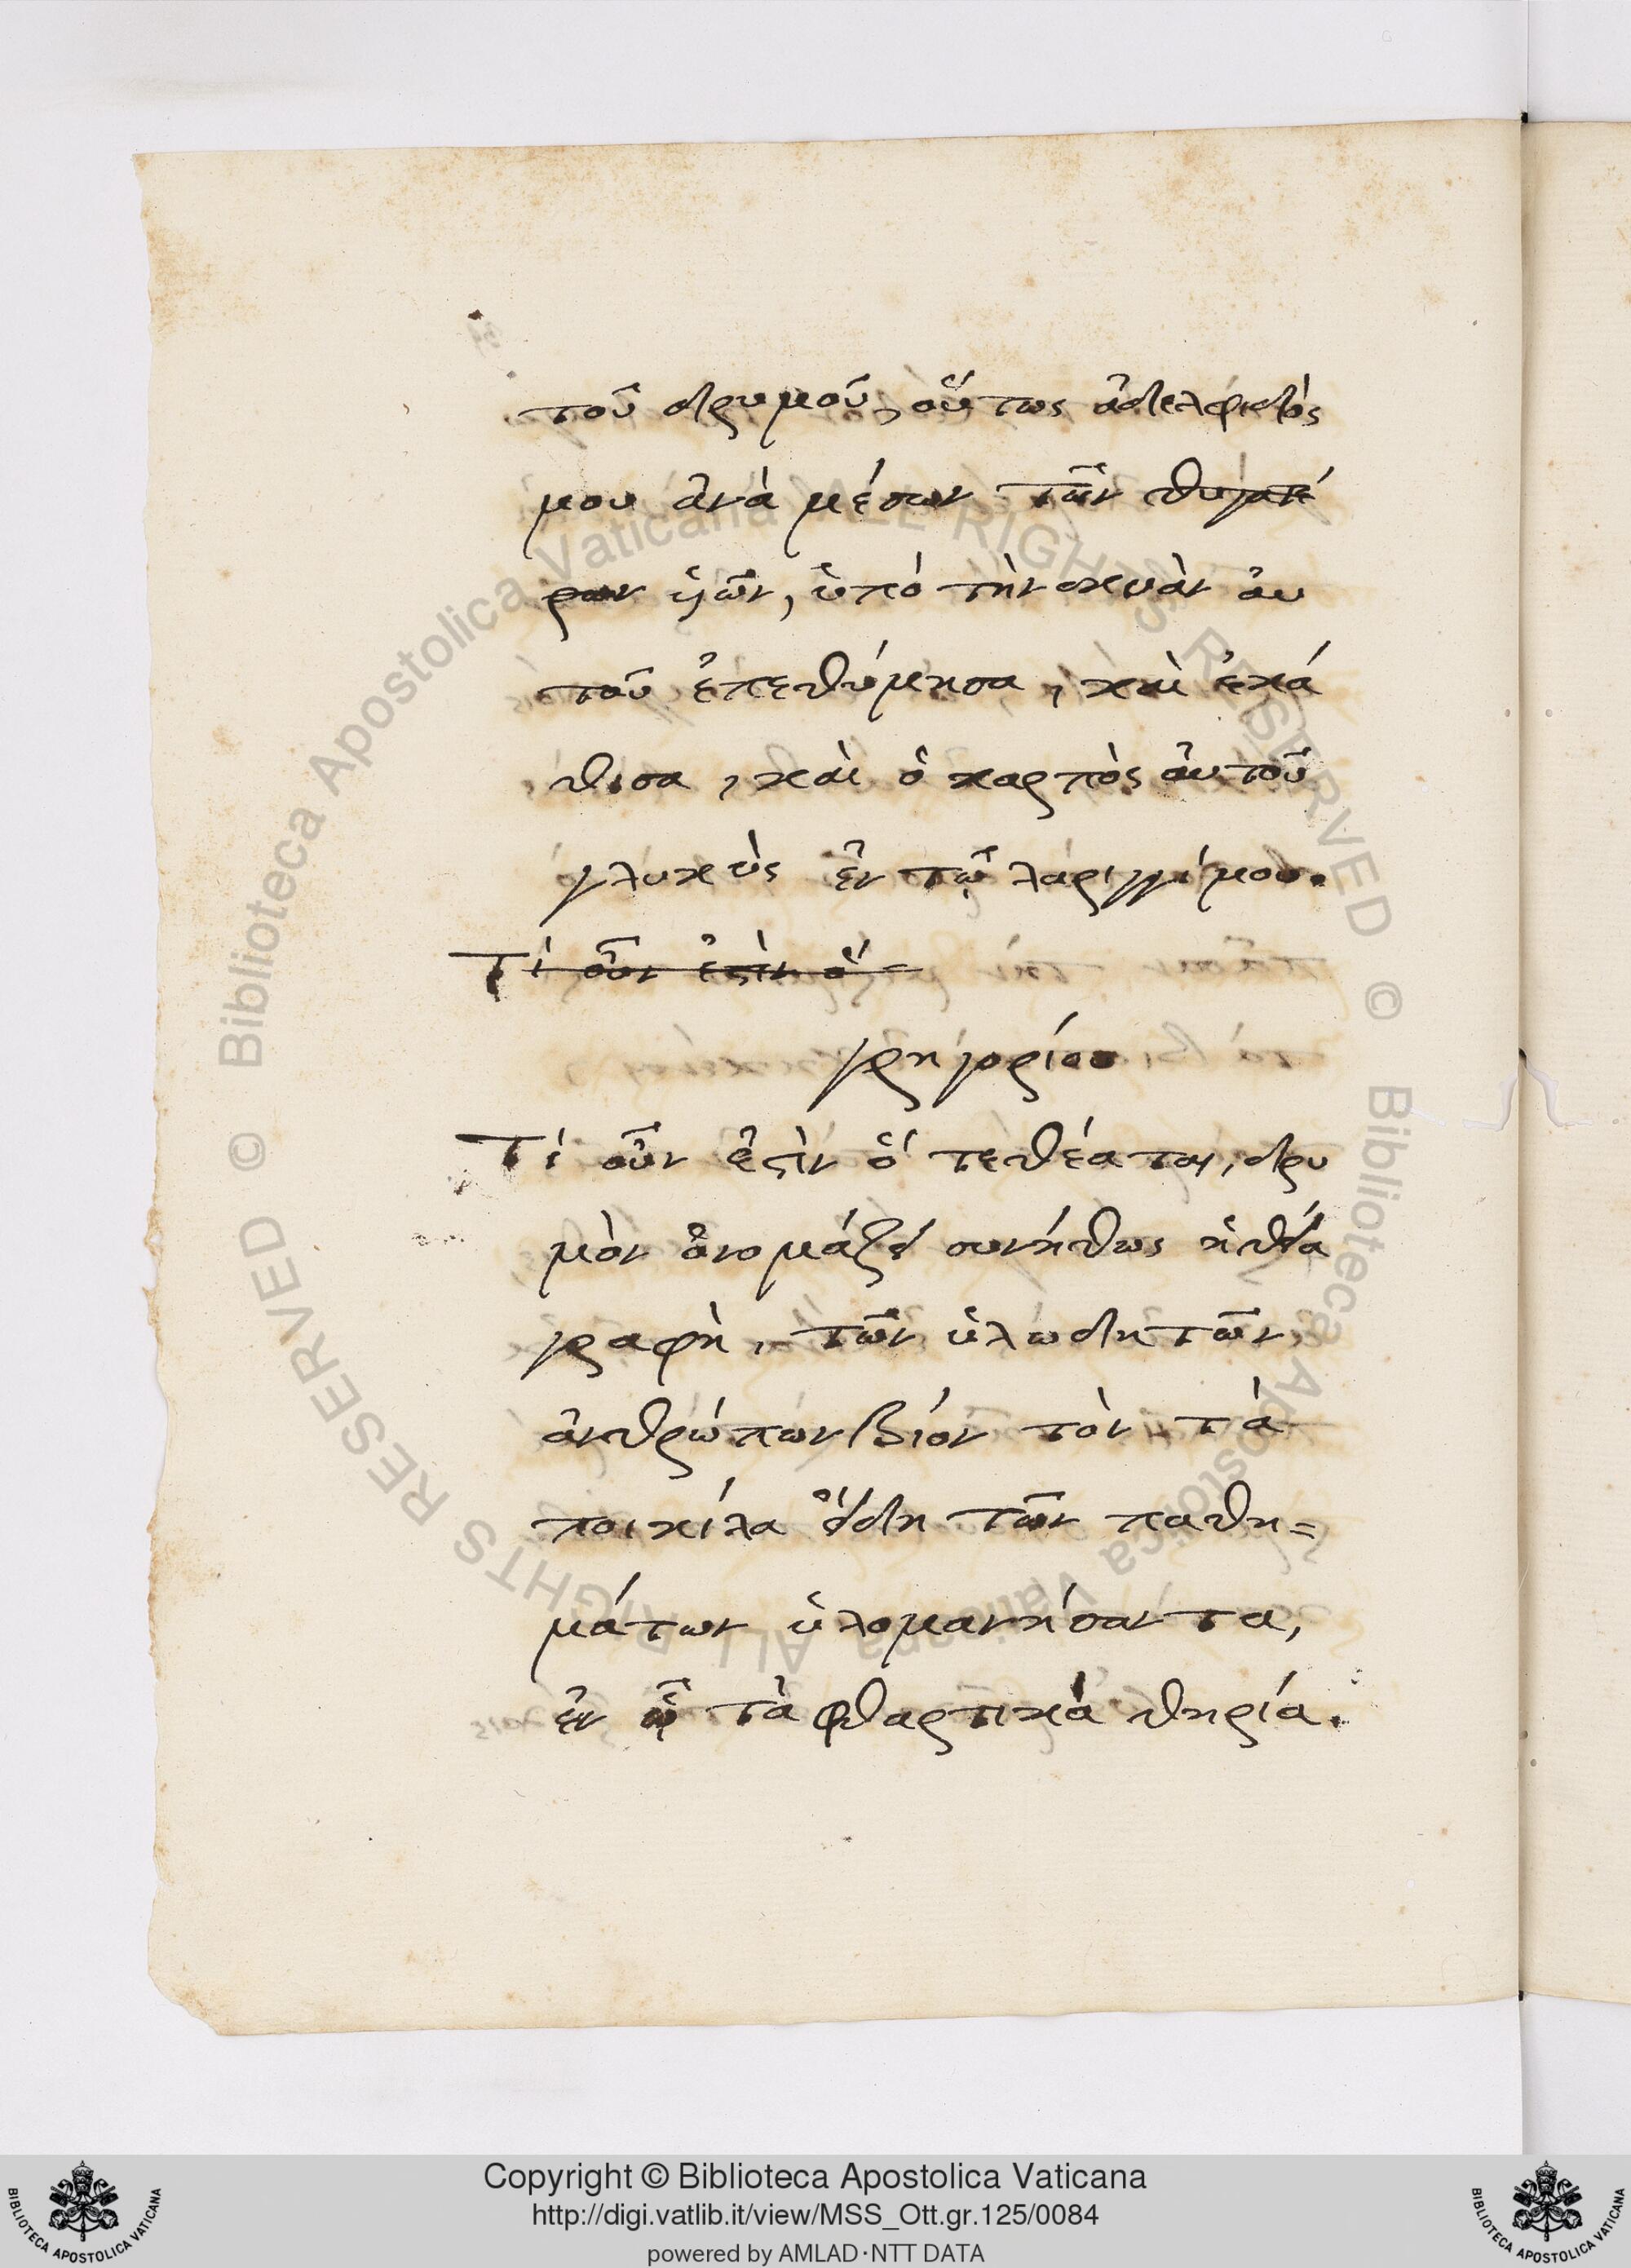 τοῦ δρυμοῦ, οὕτως ἀδελφιδός
μου ἀνὰ μέσων τῶν θυγατέ
ρων ὑῶν, ὑπὸ τὴν σκιὰν αὐ
τοῦ ἐπεθύμησα, καὶ ἐκά
θισα, καὶ ὁ καρπὸς αὐτοῦ
γλυκὺς ἐν τῷ λάρυγγί μου.
Τί οὖν ἐστὶν ὅ
γρηγορίου
Τί οὖν ἐστὶν ὅ τεθέαται, δρυ
μὸν ὀνομάζει συνήθως ἡ θεία
γραφὴ, τῶν ὑλώδη τῶν
ἀνθρώπων βίον τὸν τὰ
ποικίλα εἴδη τῶν παθη=
μάτων ὑλομανήσαντα,
ἐν ᾧ τὰ φθαρτικὰ θηρία.
Biblioteca Apostolica Vaticana ALL RIGHTS RESERVED ©
Biblioteca Apostolica Vaticana ALL RIGHTS RESERVED ©
Copyright © Biblioteca Apostolica Vaticana
http://digi.vatlib.it/view/MSS_Ott.gr.125/0084
powered by AMLAD·NTT DATA
BIBLIOTECA APOSTOLICA VATICANA
BIBLIOTECA APOSTOLICA VATICANA